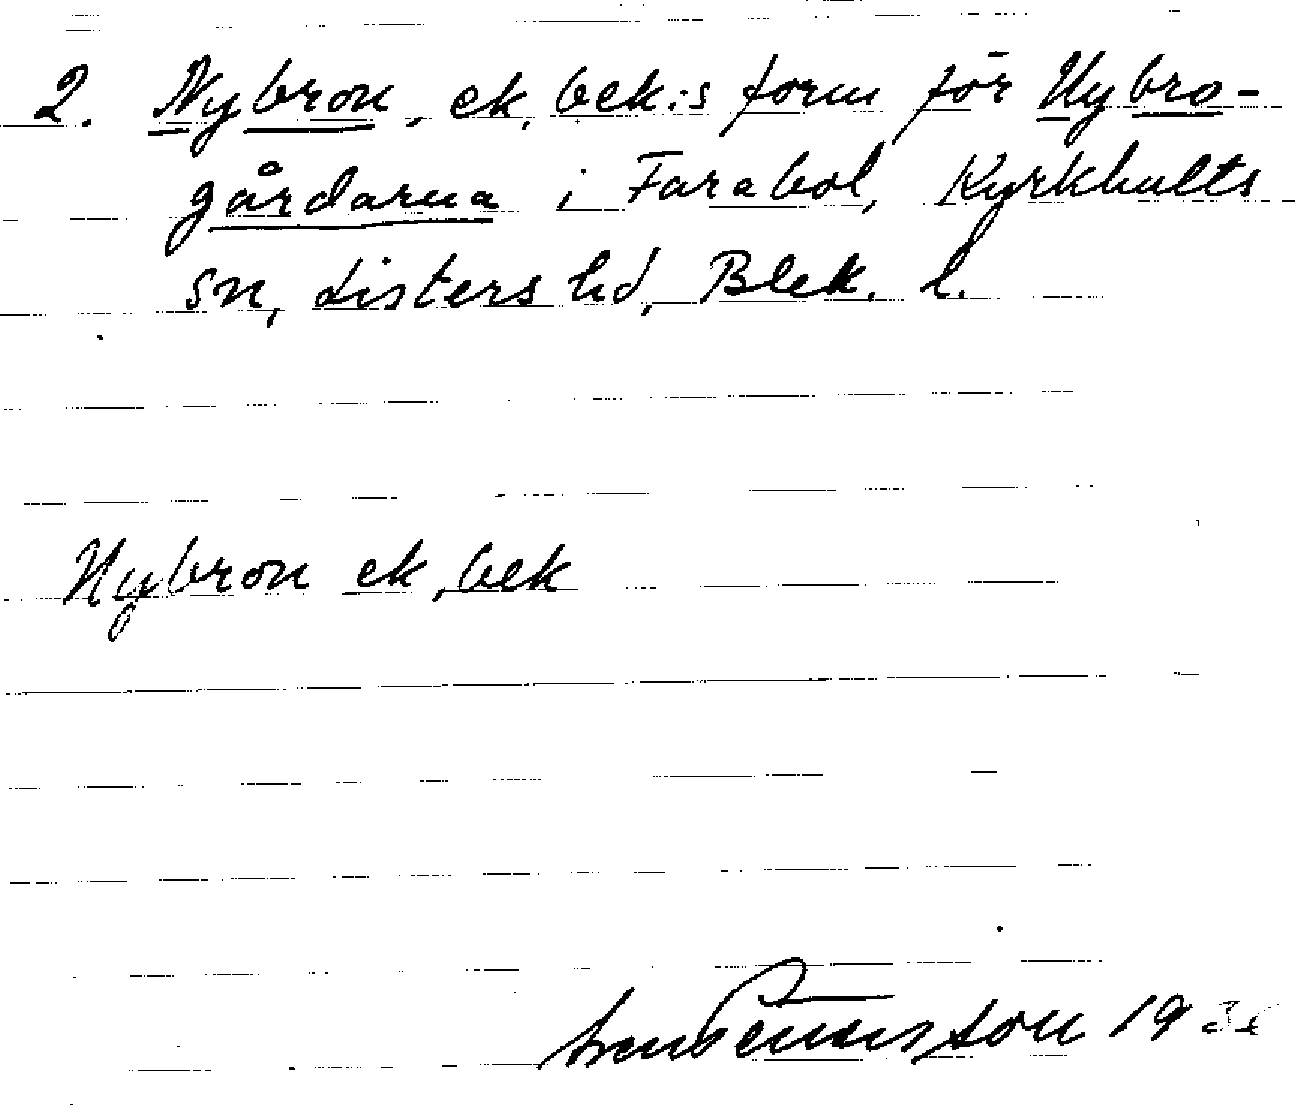 2. Nybron, ek, bek:s form för Nybro-
gårdarna i Farabol, Kyrkhults
sn, Listers hd, Blek. l.
Nybron ek, bek
Sven Benson 19